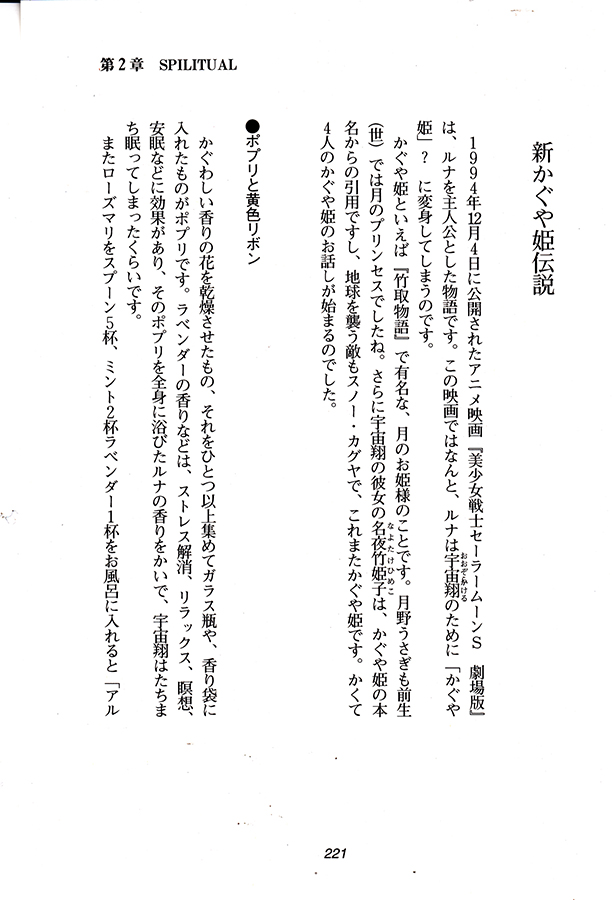 第2章 SPILITUAL
新かぐや姫伝説
1994年12月4日に公開されたアニメ映画『美少女戦士セーラームーンS 劇場版』
は、ルナを主人公とした物語です。この映画ではなんと、ルナは宇宙翔のために「かぐや
おおぞらかける
姫」? に変身してしまうのです。
かぐや姫といえば『竹取物語』で有名な、月のお姫様のことです。月野うさぎも前生
(世)では月のプリンセスでしたね。さらに宇宙翔の彼女の名夜竹姫子は、かぐや姫の本
なよたけひめこ
名からの引用ですし、地球を襲う敵もスノー・カグヤで、これまたかぐや姫です。かくて
4人のかぐや姫のお話しが始まるのでした。
●ポプリと黄色リボン
かぐわしい香りの花を乾燥させたもの、それをひとつ以上集めてガラス瓶や、香り袋に
入れたものがポプリです。ラベンダーの香りなどは、ストレス解消、リラックス、瞑想、
安眠などに効果があり、そのポプリを全身に浴びたルナの香りをかいで、宇宙翔はたちま
ち眠ってしまったくらいです。
またローズマリをスプーン5杯、ミント2杯ラベンダー1杯をお風呂に入れると「アル
221